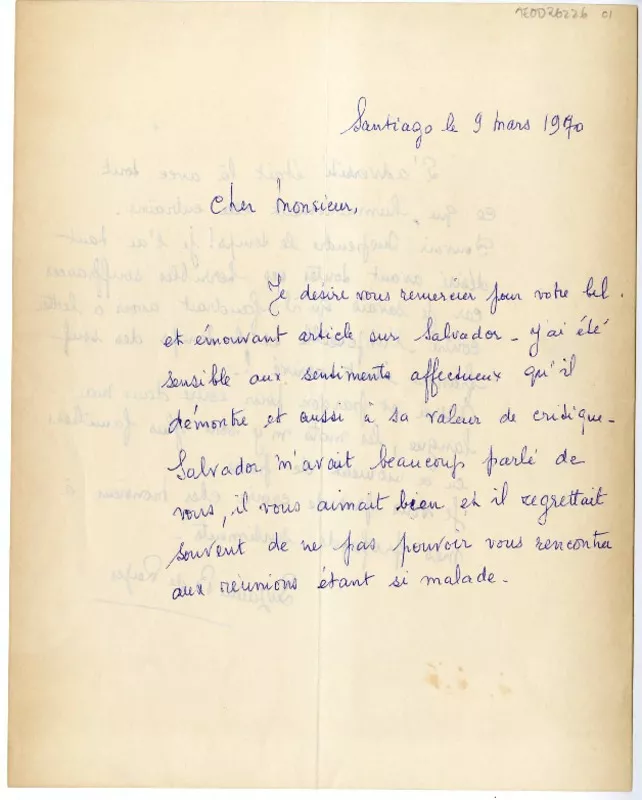 Santiago le 9 mars 1970
Cher Monsieur,
Je désire vous remercier pour votre bel
et émouvant article sur Salvador - y'ai été
sensible aux sentiments affectueux qu'il
démontre et aussi à sa valeur de critique -
Salvador m'avait beaucoup parlé de
vous, il vous aimait bien et il regrettait
souvent de ne pas pouvoir vous rencontrer
aux réunions étant si malade -